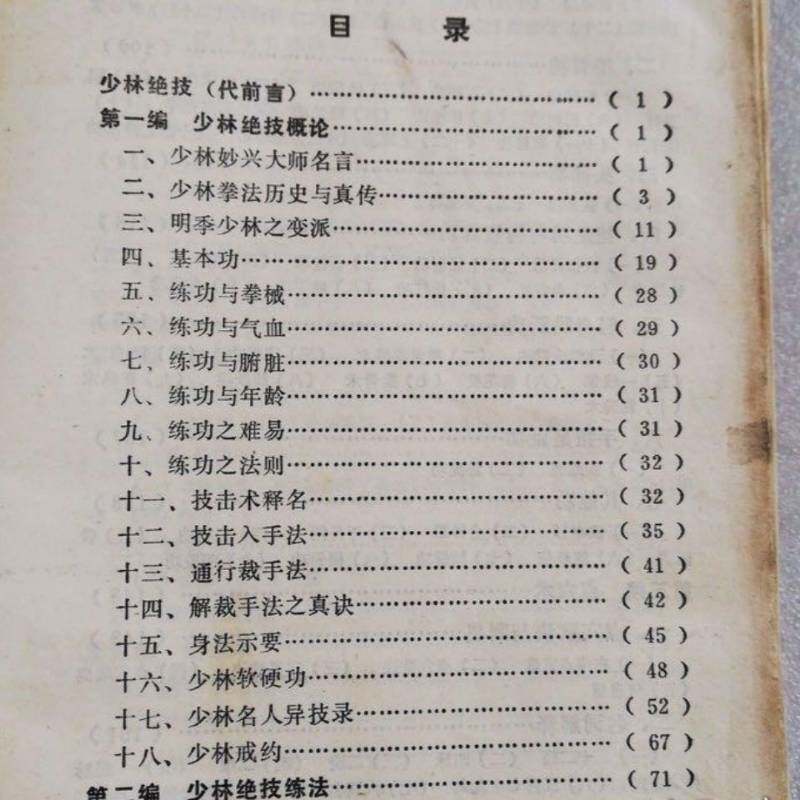 目 录
少林绝技（代前言）……………………………（ 1 ）
第一编 少林绝技概论……………………………（ 1 ）
一、少林妙兴大师名言……………………………（ 1 ）
二、少林拳法历史与真传……………………………（ 3 ）
三、明季少林之变派……………………………（ 11 ）
四、基本功……………………………（ 19 ）
五、练功与拳械……………………………（ 28 ）
六、练功与气血……………………………（ 29 ）
七、练功与腑脏……………………………（ 30 ）
八、练功与年龄……………………………（ 31 ）
九、练功之难易……………………………（ 31 ）
十、练功之法则……………………………（ 32 ）
十一、技击术释名……………………………（ 32 ）
十二、技击入手法……………………………（ 35 ）
十三、通行裁手法……………………………（ 41 ）
十四、解裁手法之真诀……………………………（ 42 ）
十五、身法示要……………………………（ 45 ）
十六、少林软硬功……………………………（ 48 ）
十七、少林名人异技录……………………………（ 52 ）
十八、少林戒约……………………………（ 67 ）
第二编 少林绝技练法……………………………（ 71 ）